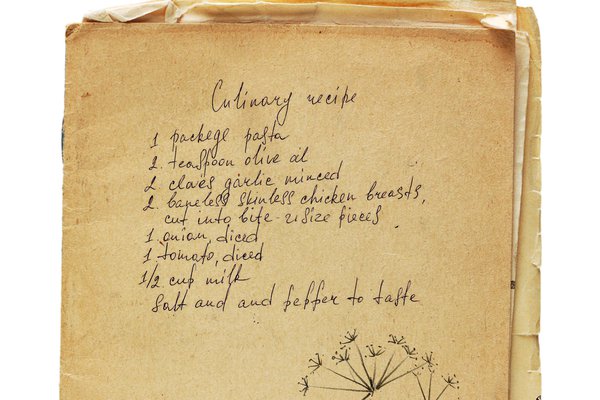 Culinary recipe
1 packege pasta
2. teaspoon olive oil
2 claves garlic minced
2. baneless skinless chicken breasts,
cut into bite-size pieces
1. onion, diced
1 tomato, diced
1/2 cup milk
Salt and and pepper to taste